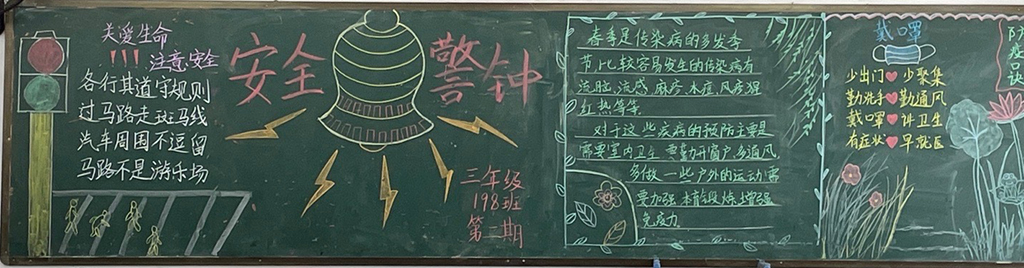 关爱生命
!!!注意安全
各行其道守规则
过马路走斑马线
汽车周围不逗留
马路不是游乐场
安全警钟
三年级
198班
第二期
春季是传染病的多发季
节比较容易发生的传染病有
流脑 流感 麻疹 水痘 风疹猩
红热等等
对于这些疾病的预防主要是
需要室内卫生 要勤开窗户多通风
多做一些户外的运动需
要加强 锻炼增强
免疫力
戴口罩
少出门♥少聚集
勤洗手♥勤通风
戴口罩♥讲卫生
有症状♥早就医